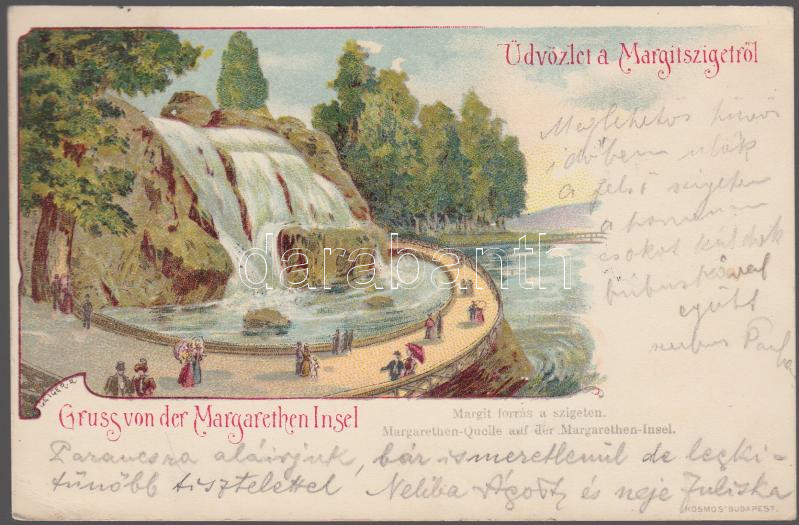 Üdvözlet a Margitszigetről
Meglehetős hűvös
időben ülök
a felső szigeten
a honnan
csókot küldök
együtt
darabanth
GEIGER R.
Gruss von der Margarethen Insel
Margit forrás a szigeten.
Margarethen-Quelle auf der Margarethen-Insel.
Parancsra aláirjuk, bar ismeretlenül de legki-
tünőbb tisztelettel Neliba Ágost és neje Juliska
KOSMOS BUDAPEST.